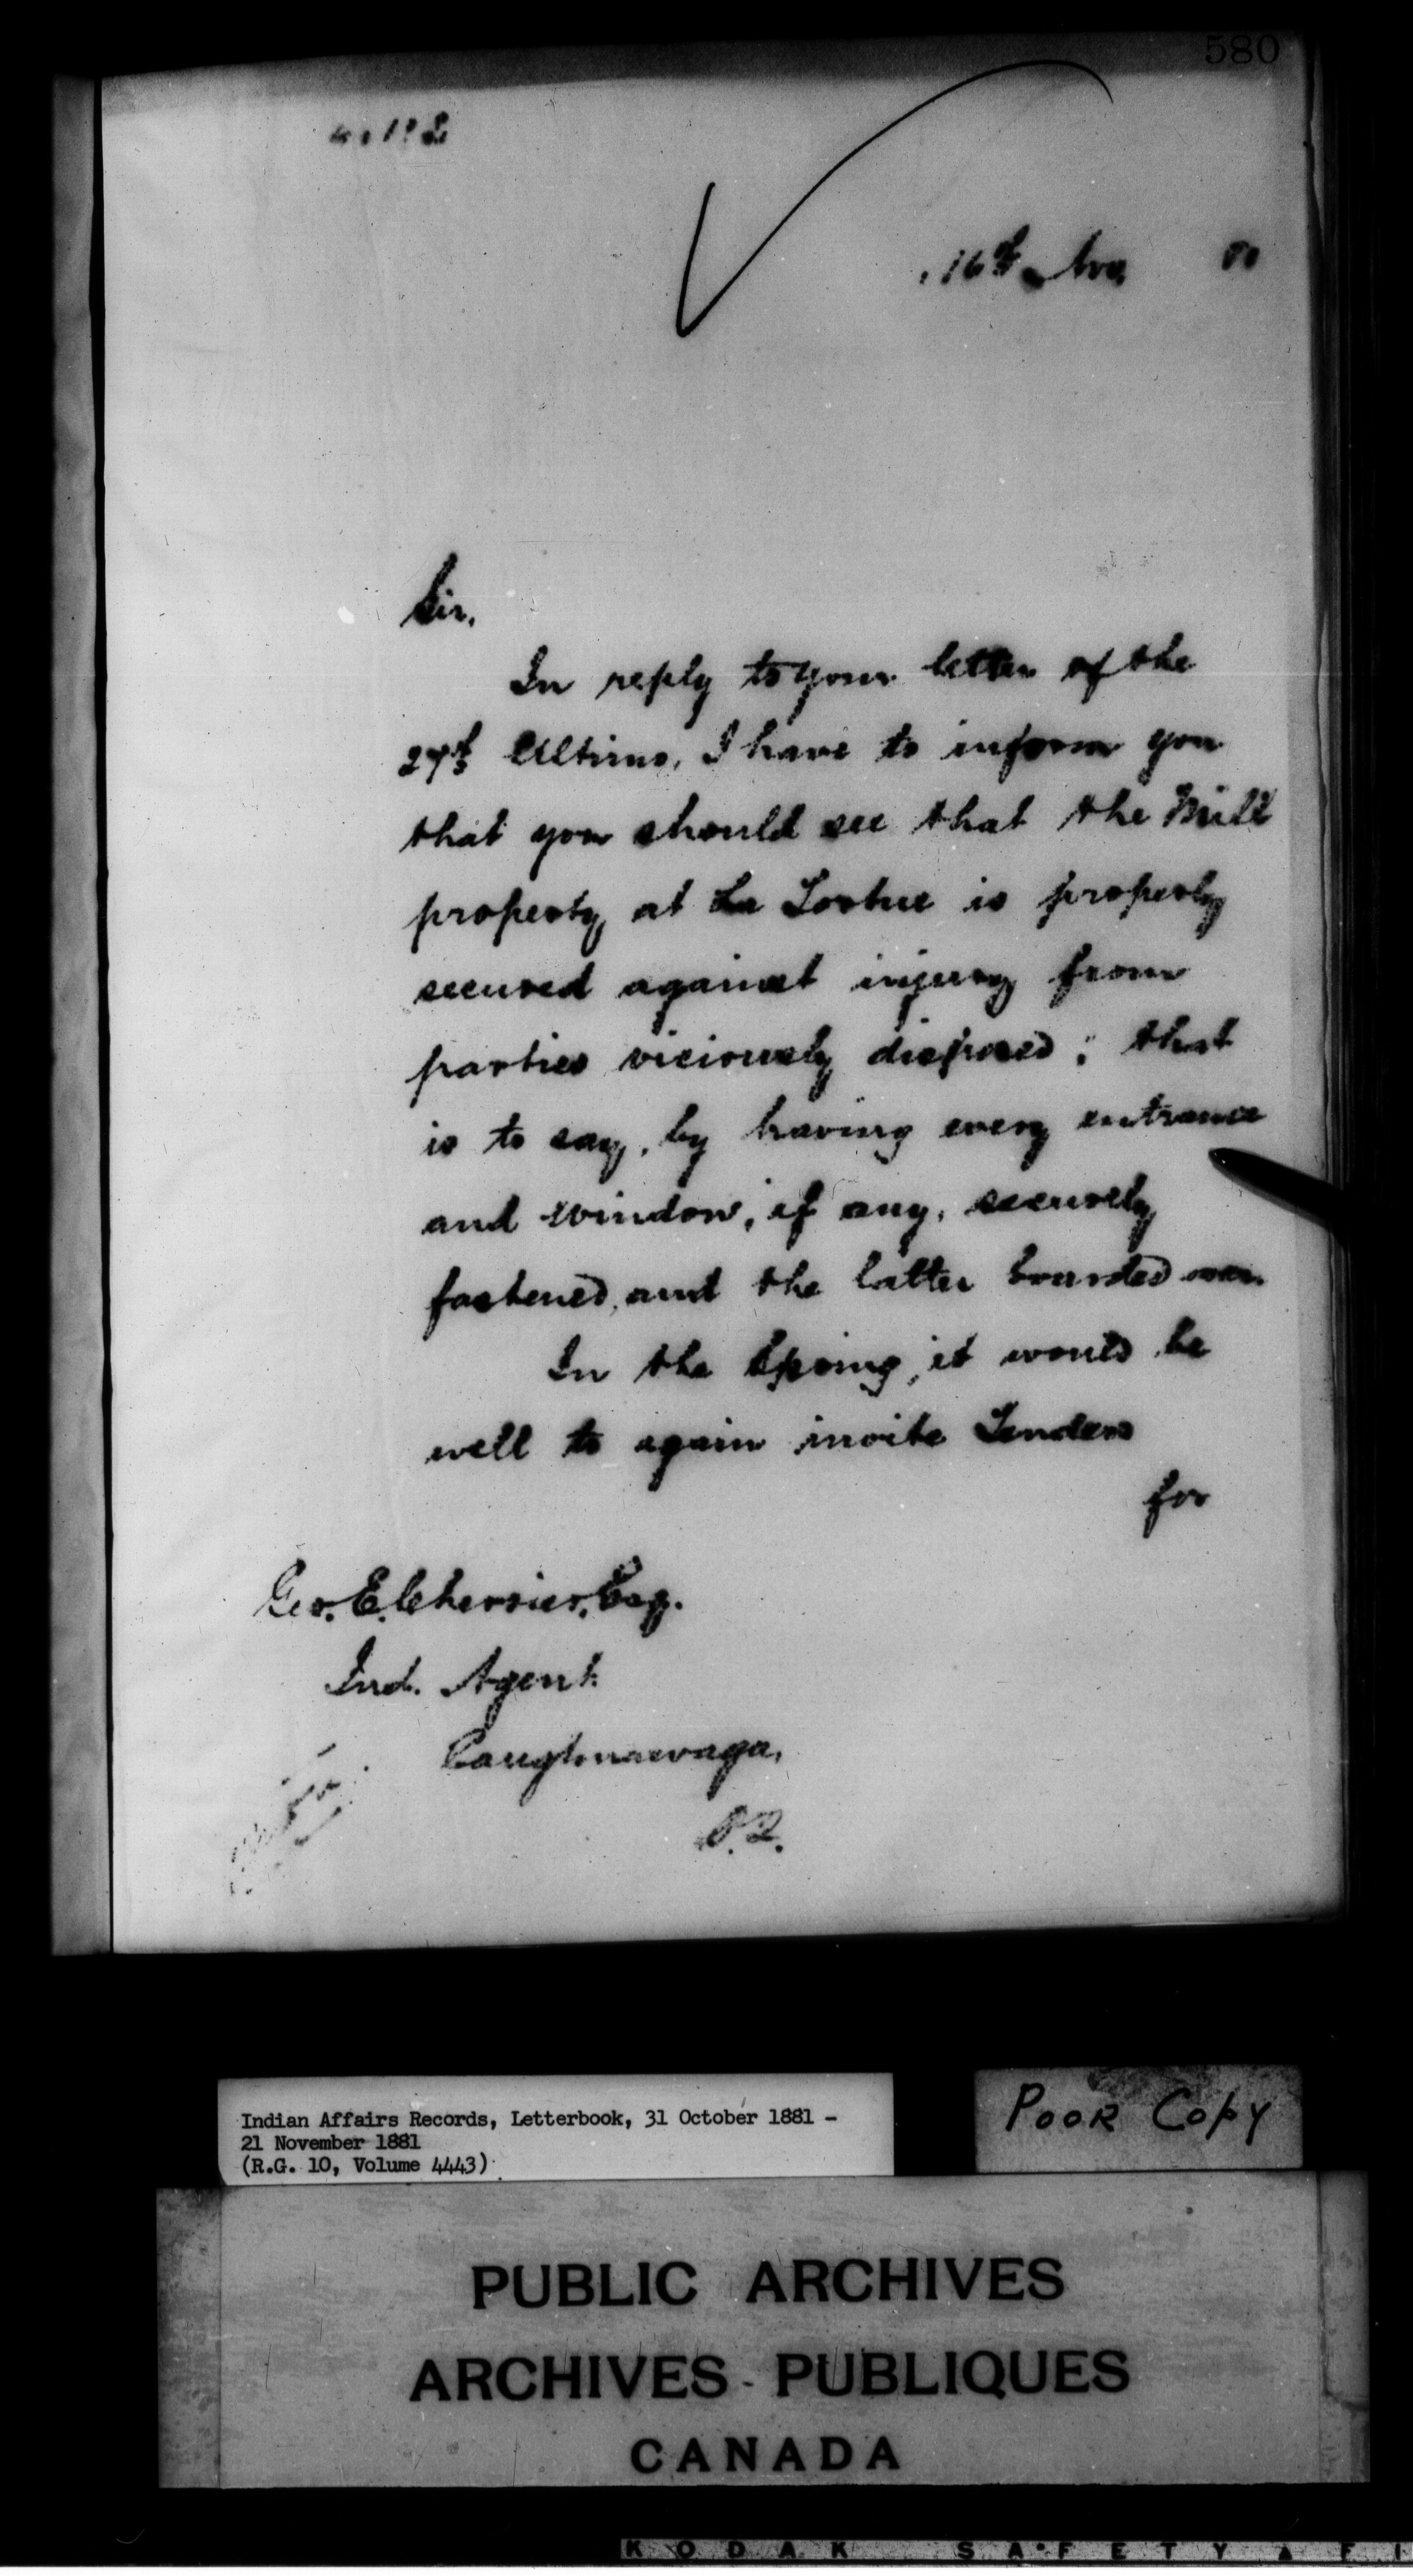 580
16th Nov.
Sir,
In reply to your letter of the
27th Ultimo, I have to inform you
that you should see that the Mill
property at La Tortue is properly
secured against injury from
parties viciously disposed; that
is to say, by having every entrance
and window, if any, securely
fastened, and the latter boarded over.
In the Spring, it would be
well to again invite Tenders
for
Geo. E. Cherrier, Esq.
Ind. Agent.
Caughnawaga,
P.Q.
Indian Affairs Records, Letterbook, 31 October 1881 -
21 November 1881
(R.G. 10, Volume 4443)
POOR COPY
PUBLIC ARCHIVES
ARCHIVES PUBLIQUES
CANADA
KODAK SAFETY FI